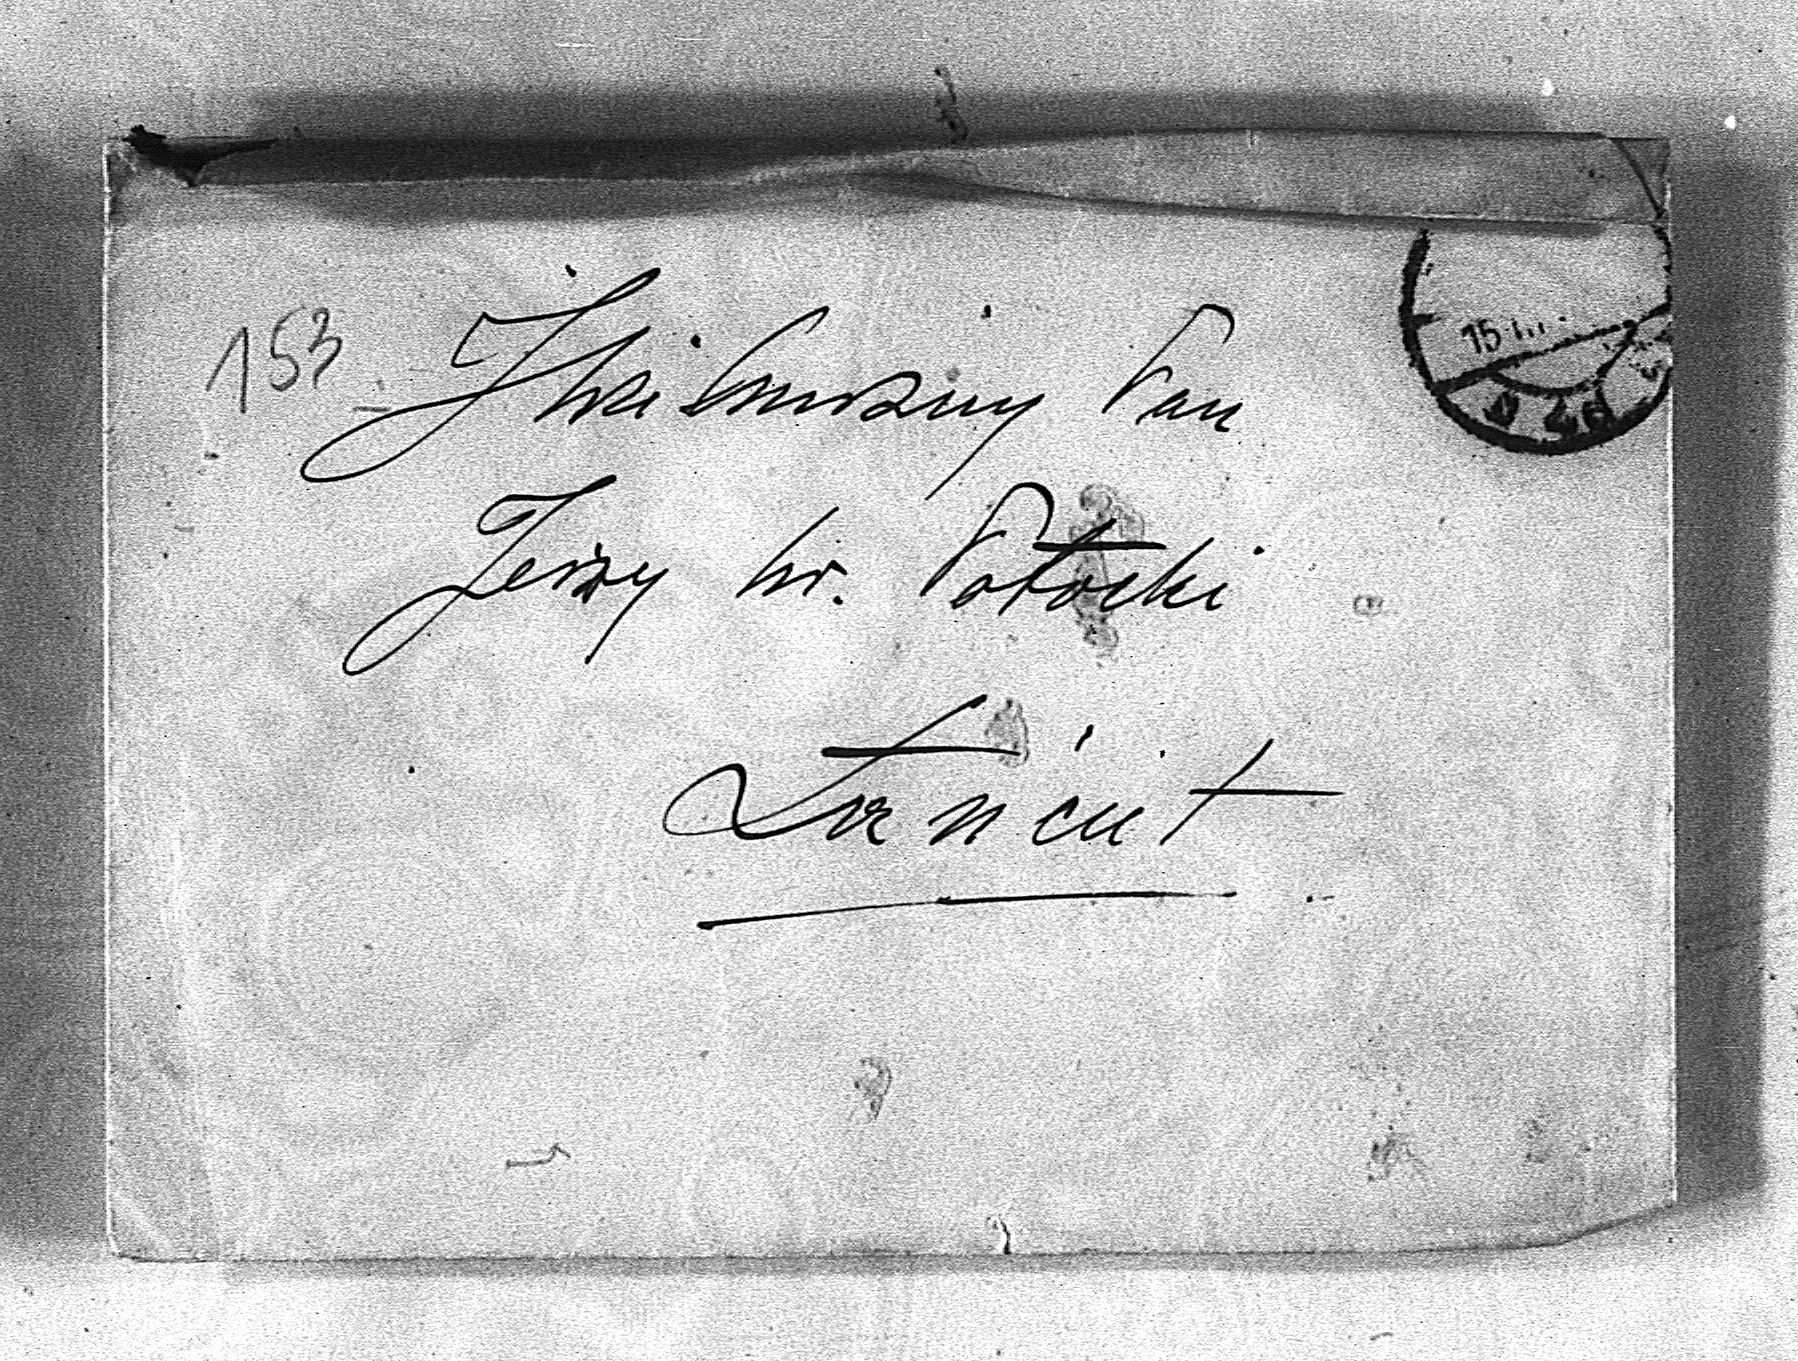 153
JWielmożny Pan
Jerzy hr. Potocki
Łańcut
15 III